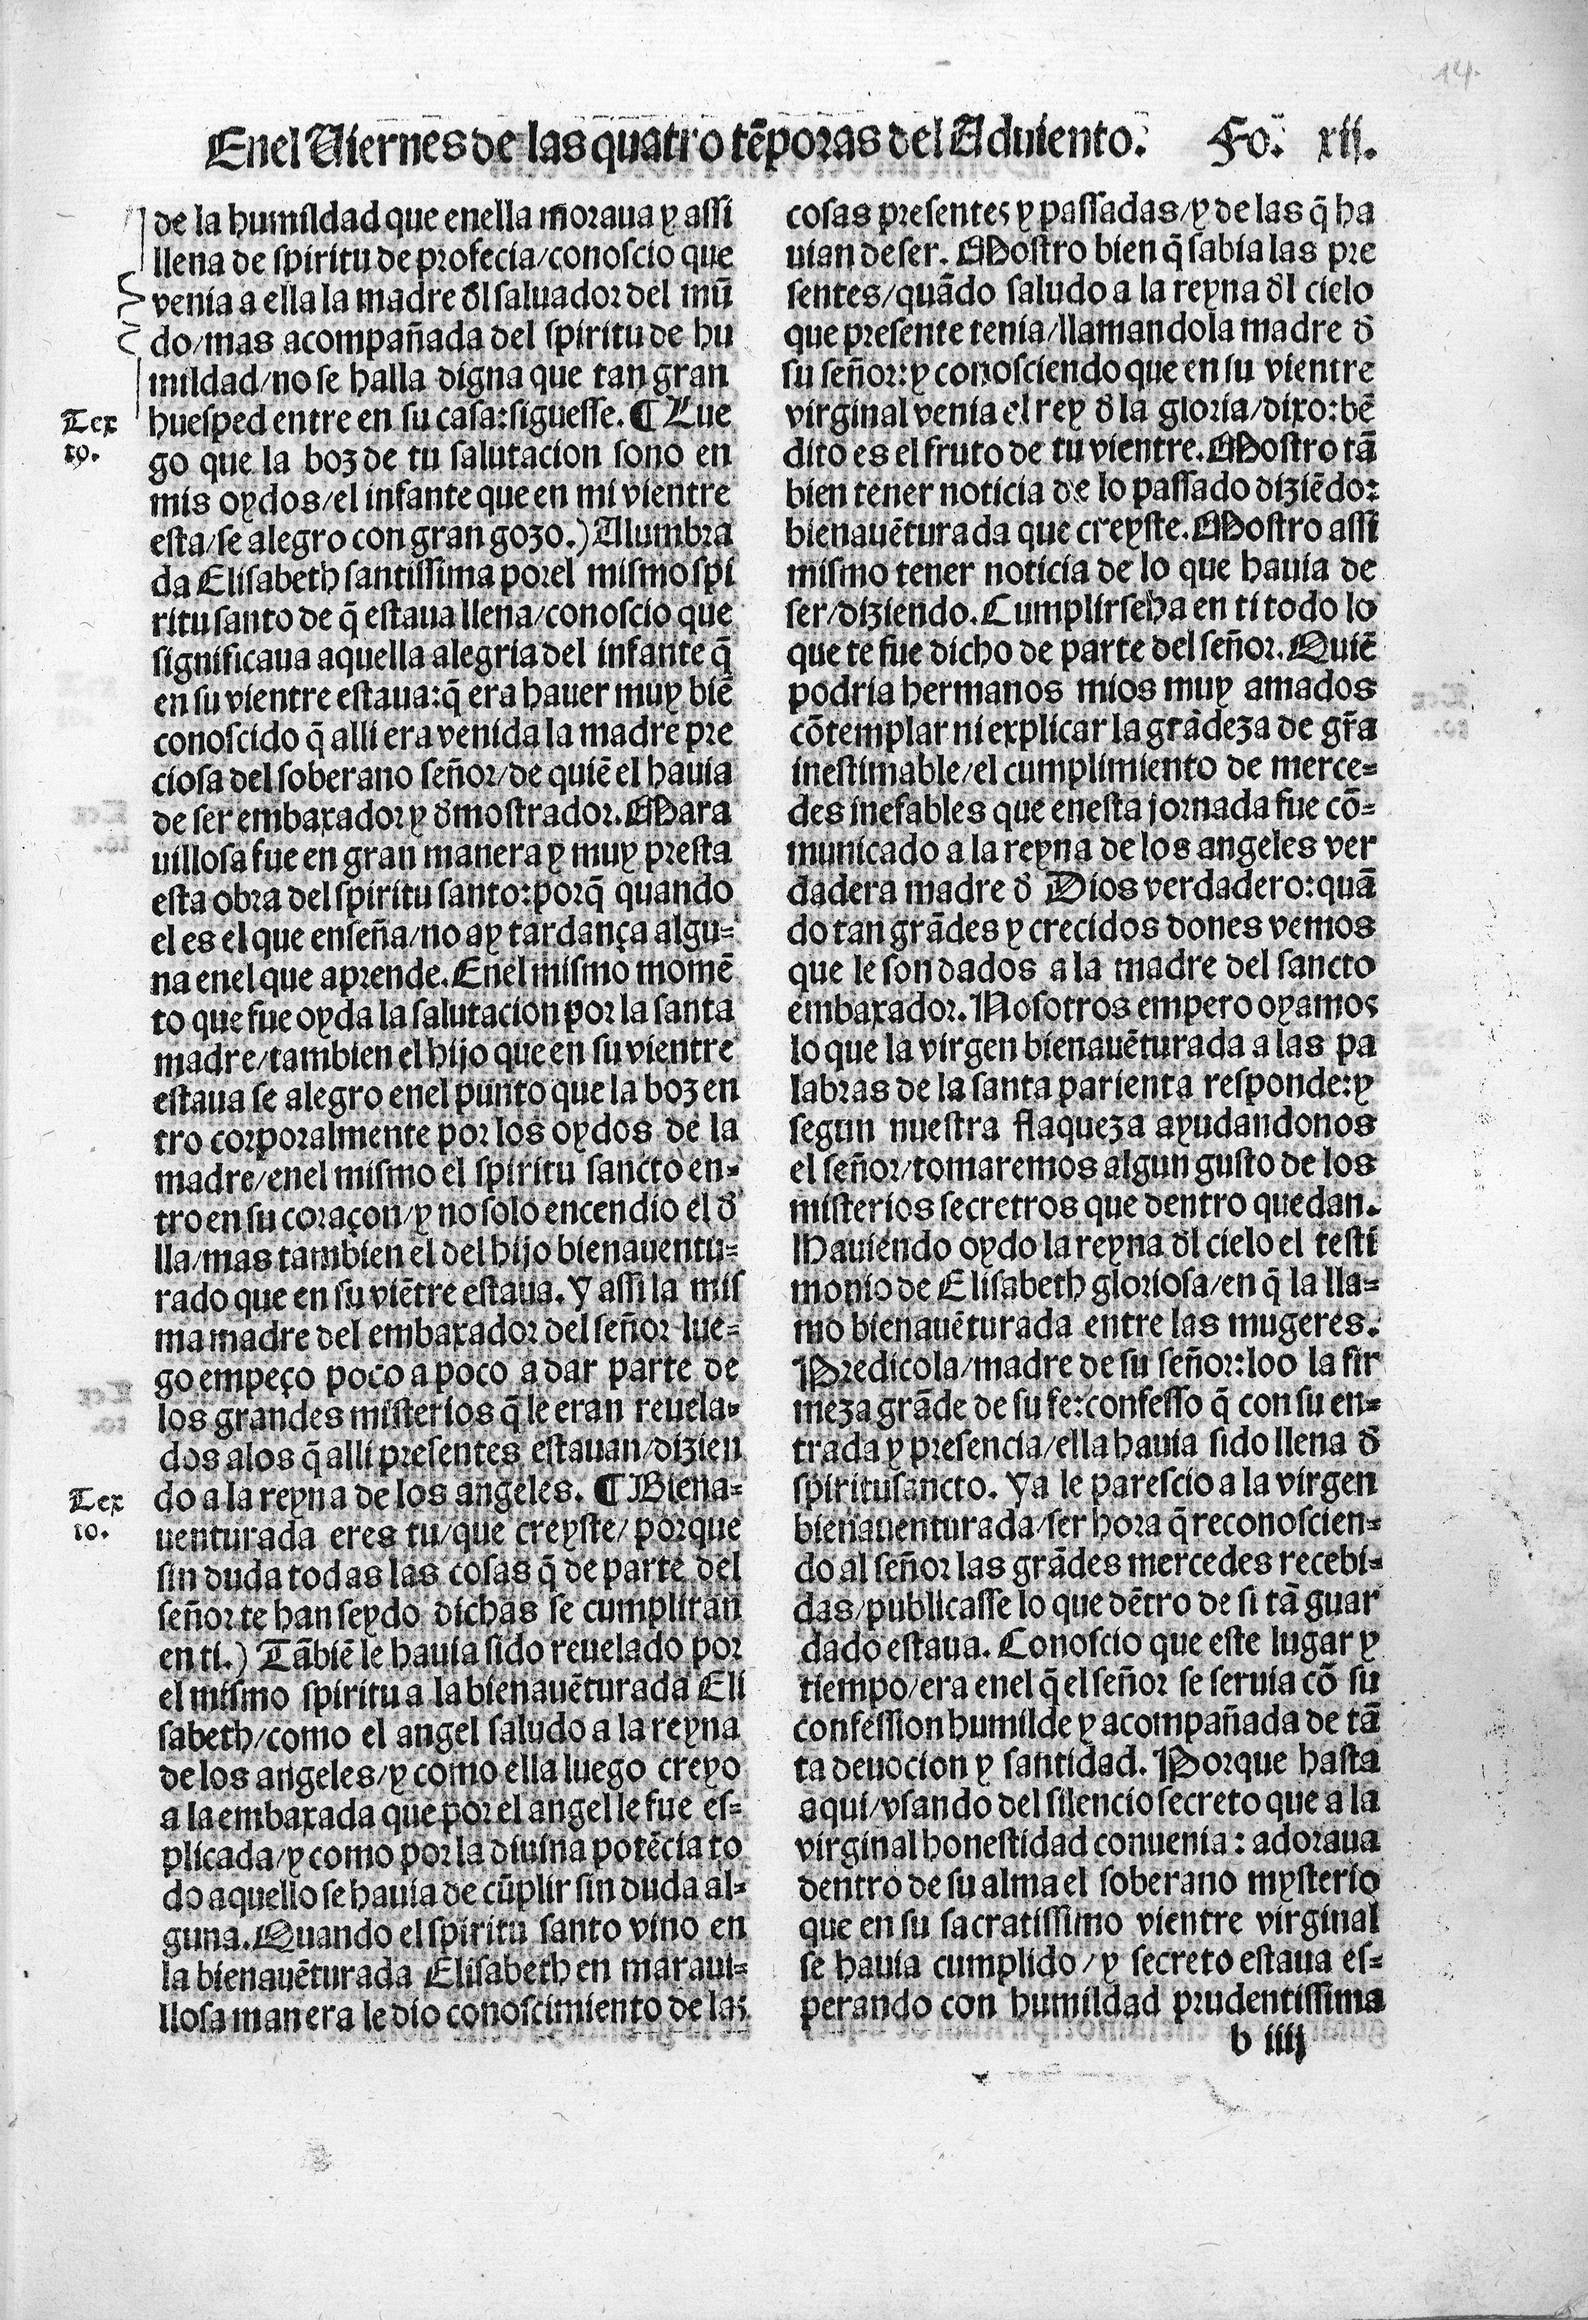 14.
Enel Viernes de las quatro tẽporas del Aduiento. Fo. xij.
de la humildad que enella moraua y assi
llena de spiritu de profecia/conoscio que
venia a ella la madre ďl saluador del mũ
do/mas acompañada del spiritu de hu
mildad/no se halla digna que tan gran
huesped entre en su casa:siguesse. ¶ Lue
Tex
to.
go que la boz de tu salutacion sono en
mis oydos/el infante que en mi vientre
esta/se alegro con gran gozo.) Alumbra
da Elisabeth santissima porel mismo spi
ritu santo de q̃ estaua llena/conoscio que
significaua aquella alegria del infante q̃
en su vientre estaua:q̃ era hauer muy biẽ
conoscido q̃ alli era venida la madre pre
ciosa del soberano señor/de quiẽ el hauia
de ser embaxador y ďmostrador. Mara
uillosa fue en gran manera y muy presta
esta obra del spiritu santo:porq̃ quando
el es el que enseña/no ay tardança algu=
na enel que aprende. Enel mismo momẽ
to que fue oyda la salutacion por la santa
madre/tambien el hijo que en su vientre
estaua se alegro enel punto que la boz en
tro corporalmente por los oydos de la
madre/enel mismo el spiritu sancto en=
tro en su coraçon/y no solo encendio el ď
lla/mas tambien el del hijo bienauentu=
rado que en su viẽtre estaua. Y assi la mis
ma madre del embaxador del señor lue=
go empeço poco a poco a dar parte de
los grandes misterios q̃ le eran reuela=
dos alos q̃ alli presentes estauan/dizien
do a la reyna de los angeles. ¶ Biena=
Tex
to.
uenturada eres tu/que creyste/porque
sin duda todas las cosas q̃ de parte del
señor te han seydo dichas se cumpliran
en ti.) Tãbiẽ le hauia sido reuelado por
el mismo spiritu a la bienauẽturada Eli
sabeth/como el angel saludo a la reyna
de los angeles/y como ella luego creyo
a la embaxada que por el angel le fue es=
plicada/y como por la diuina potẽcia to
do aquello se hauia de cũplir sin duda al=
guna. Quando el spiritu santo vino en
la bienauẽturada Elisabeth en maraui=
llosa manera le dio conoscimiento de las
cosas presentes y passadas/y de las q̃ ha
uian de ser. Mostro bien q̃ sabia las pre
sentes/quãdo saludo a la reyna ďl cielo
que presente tenia/llamandola madre ď
su señor:y conosciendo que en su vientre
virginal venia el rey ď la gloria/dixo:bẽ
dito es el fruto de tu vientre. Mostro tã
bien tener noticia de lo passado diziẽdo:
bienauẽturada que creyste. Mostro assi
mismo tener noticia de lo que hauia de
ser/diziendo. Cumplirseha en ti todo lo
que te fue dicho de parte del señor. Quiẽ
podria hermanos mios muy amados
cõtemplar ni explicar la grãdeza de gr̃a
inestimable/el cumplimiento de merce=
des inefables que enesta jornada fue cõ=
municado a la reyna de los angeles ver
dadera madre ď Dios verdadero:quã
do tan grãdes y crecidos dones vemos
que le son dados a la madre del sancto
embaxador. Nosotros empero oyamos
lo que la virgen bienauẽturada a las pa
labras de la santa parienta responde:y
segun nuestra flaqueza ayudandonos
el señor/tomaremos algun gusto de los
misterios secretros que dentro quedan.
Hauiendo oydo la reyna ďl cielo el testi
monio de Elisabeth gloriosa/en q̃ la lla=
mo bienauẽturada entre las mugeres.
Predicola/madre de su señor:loo la fir
meza grãde de su fe:confesso q̃ con su en=
trada y presencia/ella hauia sido llena ď
spiritusancto. Ya le parescio a la virgen
bienauenturada/ser hora q̃ reconoscien=
do al señor las grãdes mercedes recebi=
das/publicasse lo que dẽtro de si tã guar
dado estaua. Conoscio que este lugar y
tiempo/era enel q̃ el señor se seruia cõ su
confession humilde y acompañada de tã
ta deuocion y santidad. Porque hasta
aqui/vsando del silencio secreto que a la
virginal honestidad conuenia: adoraua
dentro de su alma el soberano mysterio
que en su sacratissimo vientre virginal
se hauia cumplido/y secreto estaua es=
perando con humildad prudentissima
b iiij